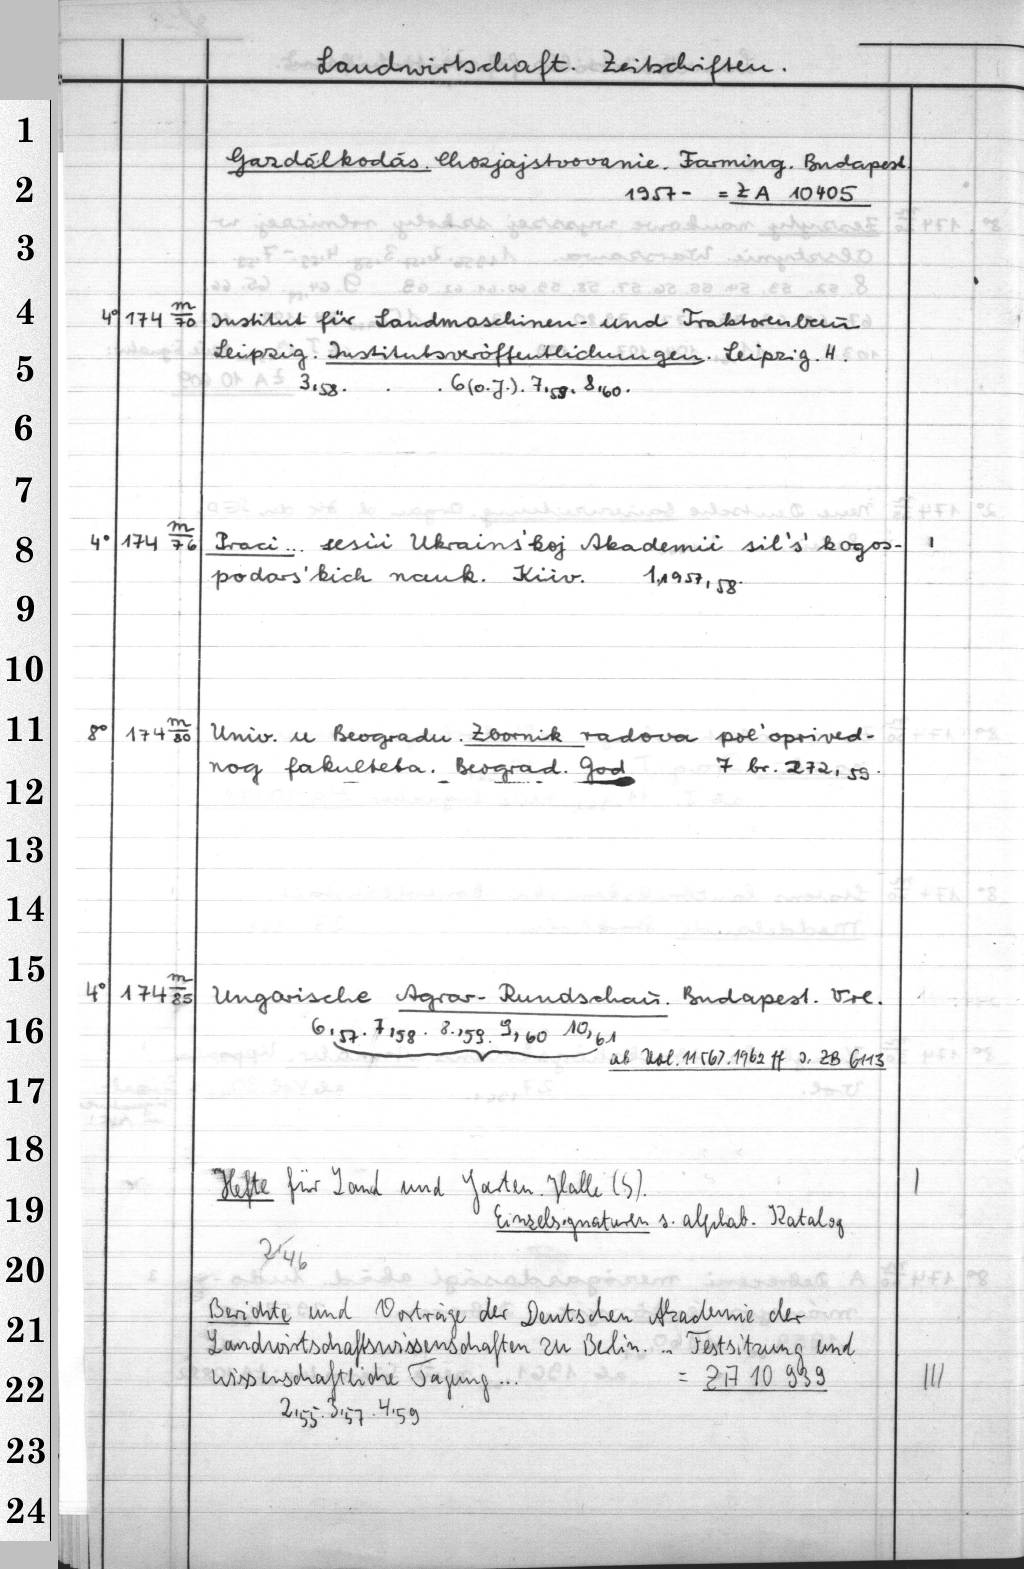 Landwirtschaft. Zeitschriften.
1
Gazdálkodás. Chozjajstvovanie. Farming. Budapest.
2
1957- = ZA 10405
3
4
4° 174 m/70 Institut für Landmaschinen- und Traktorenbau
Leipzig. Institutsveröffentlichungen. Leipzig. H.
5
3,58. . . 6(o.J.). 7,59. 8,60.
6
7
8
4° 174 m/76 Praci... sesii Ukrains'koj Akademii sil's'kogos-
podars'kich nauk. Kiiv. 1,1957,58.
9
10
11
8° 174 m/80 Univ. u Beogradu. Zbornik radova pol'oprived-
nog fakulteta. Beograd. God 7 br. 272,59.
12
13
14
15
4° 174 m/85 Ungarische Agrar-Rundschau. Budapest. Vol.
16
6,57. 7,58. 8,59. 9,60 10,61
ab Vol. 11 (6?). 1962 ff s. ZB 6113
17
18
Hefte für Land und Garten. Halle (S).
19
Einzelsignaturen s. alphab. Katalog
20
2,46
Berichte und Vorträge der Deutschen Akademie der
21
Landwirtschaftswissenschaften zu Berlin. .. Festsitzung und
22
wissenschaftliche Tagung... = ZA 10 939 III
2,55. 3,57. 4,59
23
24